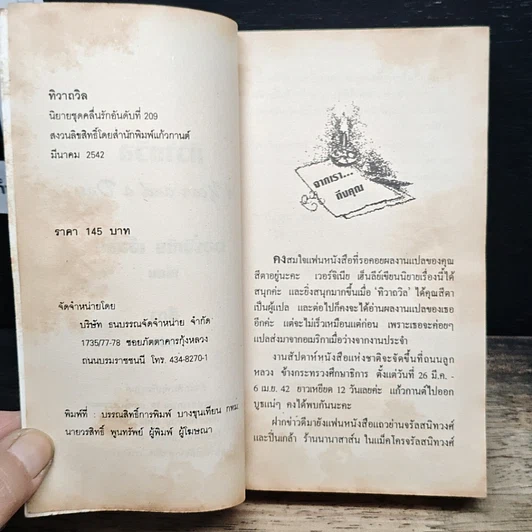 ทิวาถวิล
นิยายชุดคลื่นรักอันดับที่ 209
สงวนลิขสิทธิ์โดยสำนักพิมพ์แก้วกานต์
มีนาคม 2542
ราคา 145 บาท
จัดจำหน่ายโดย
บริษัท ธนบรรณจัดจำหน่าย จำกัด
1735/77-78 ซอยภัตตาคารกุ้งหลวง
ถนนบรมราชชนนี โทร. 434-8270-1
พิมพ์ที่ : บรรณสิทธิ์การพิมพ์ บางขุนเทียน กทม.
นายวรสิทธิ์ พูนทรัพย์ ผู้พิมพ์ ผู้โฆษณา
จากเรา...
ถึงคุณ
คงสมใจแฟนหนังสือที่รอคอยผลงานแปลของคุณ
สีตาอยู่นะคะ เวอร์จิเนีย เฮ็นลีย์เขียนนิยายเรื่องนี้ได้
สนุกค่ะ และยิ่งสนุกมากขึ้นเมื่อ 'ทิวาถวิล' ได้คุณสีตา
เป็นผู้แปล และต่อไปก็คงจะได้อ่านผลงานแปลของเธอ
อีกค่ะ แต่จะไม่เร็วเหมือนแต่ก่อน เพราะเธอจะค่อยๆ
แปลส่งมาจากอเมริกาเมื่อว่างจากงานประจำ
งานสัปดาห์หนังสือแห่งชาติจะจัดขึ้นที่ถนนลูก
หลวง ข้างกระทรวงศึกษาธิการ ตั้งแต่วันที่ 26 มี.ค. -
6 เม.ย. 42 ยาวเหยียด 12 วันเลยค่ะ แก้วกานต์ไปออก
บูธแน่ๆ คงได้พบกันนะคะ
ฝากข่าวดีมายังแฟนหนังสือแถวย่านจรัลสนิทวงศ์
และปิ่นเกล้า ร้านนานาสาส์น ในแม็คโครจรัลสนิทวงศ์